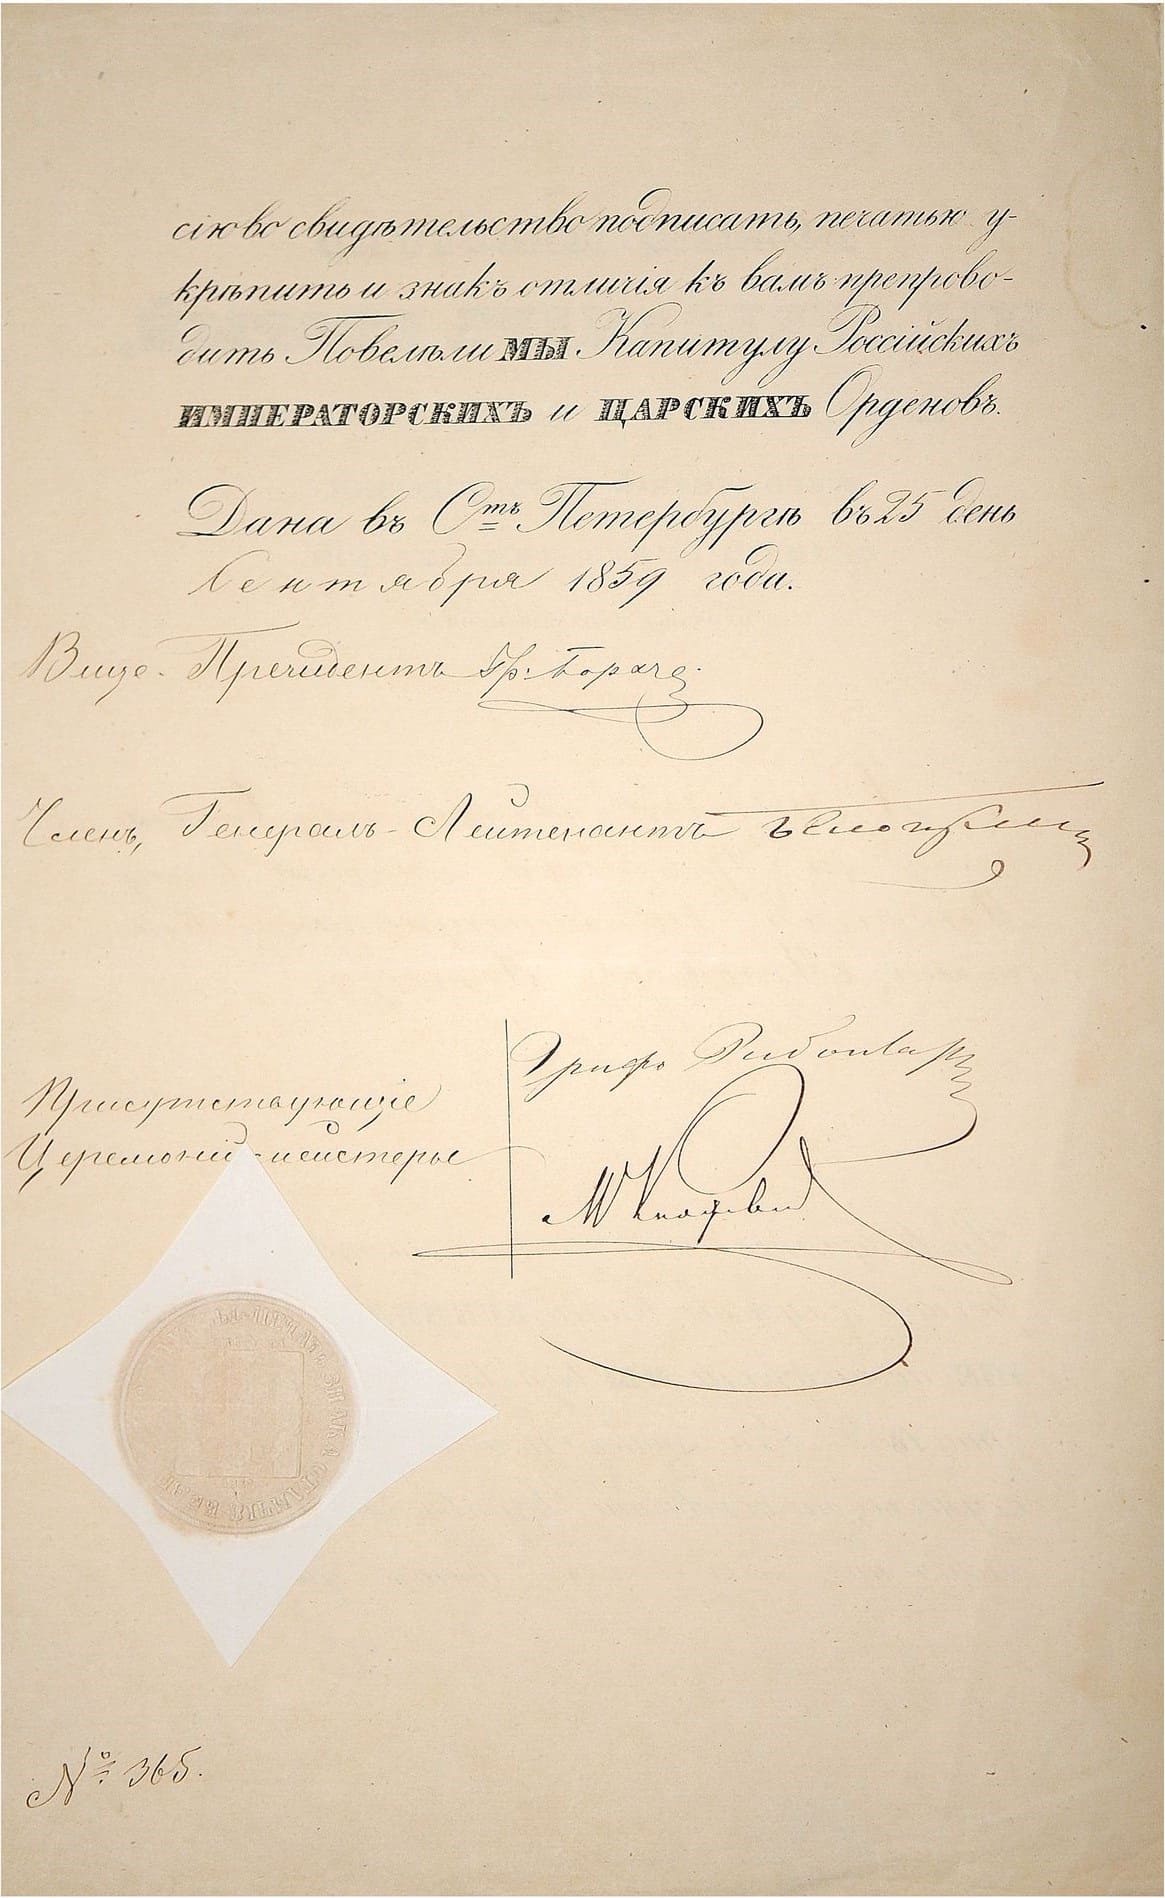 сію во свидѣтельство подписать, печатью у-
крѣпить и знакъ отличія къ вамъ препрово-
дить Повелѣли МЫ Капитулу Россійскихъ
ИМПЕРАТОРСКИХЪ и ЦАРСКИХЪ Орденовъ.
Дана въ Стъ Петербургѣ въ 25 день
Сентября 1859 года.
Вице-Президентъ Гр: Борхъ
Членъ, Генералъ-Лейтенантъ
Присутствующіе
Церемоніймейстеры
Графъ
№ 365.